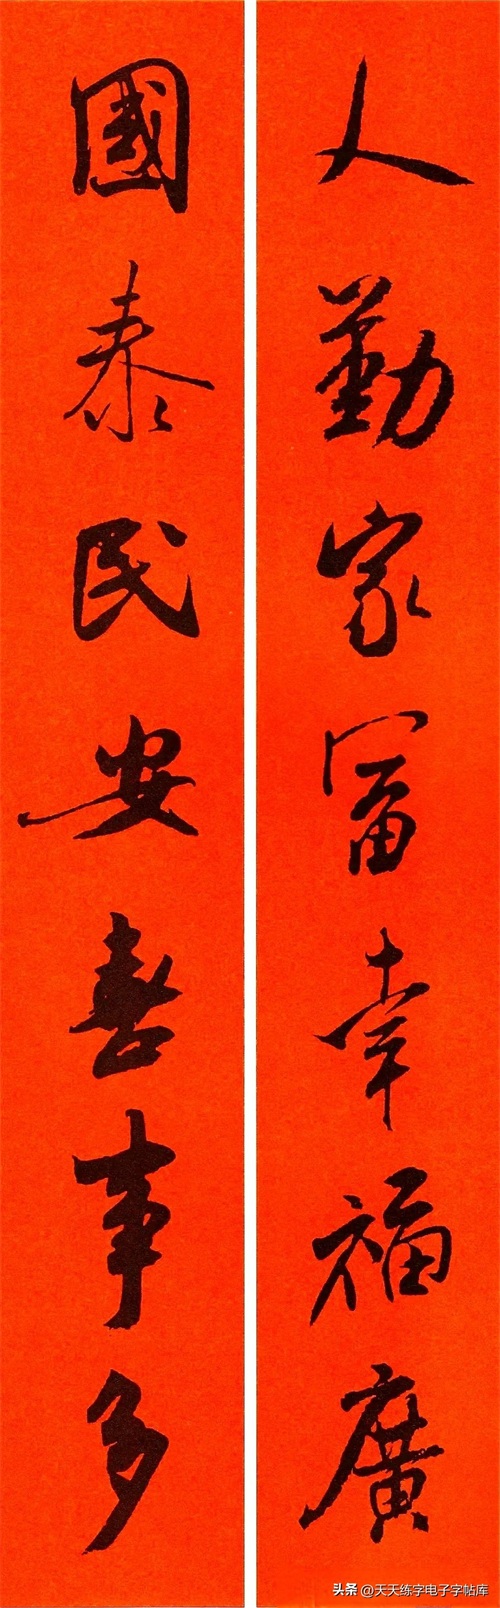 人勤家富幸福廣
國泰民安喜事多
头条 @天天练字电子字帖库